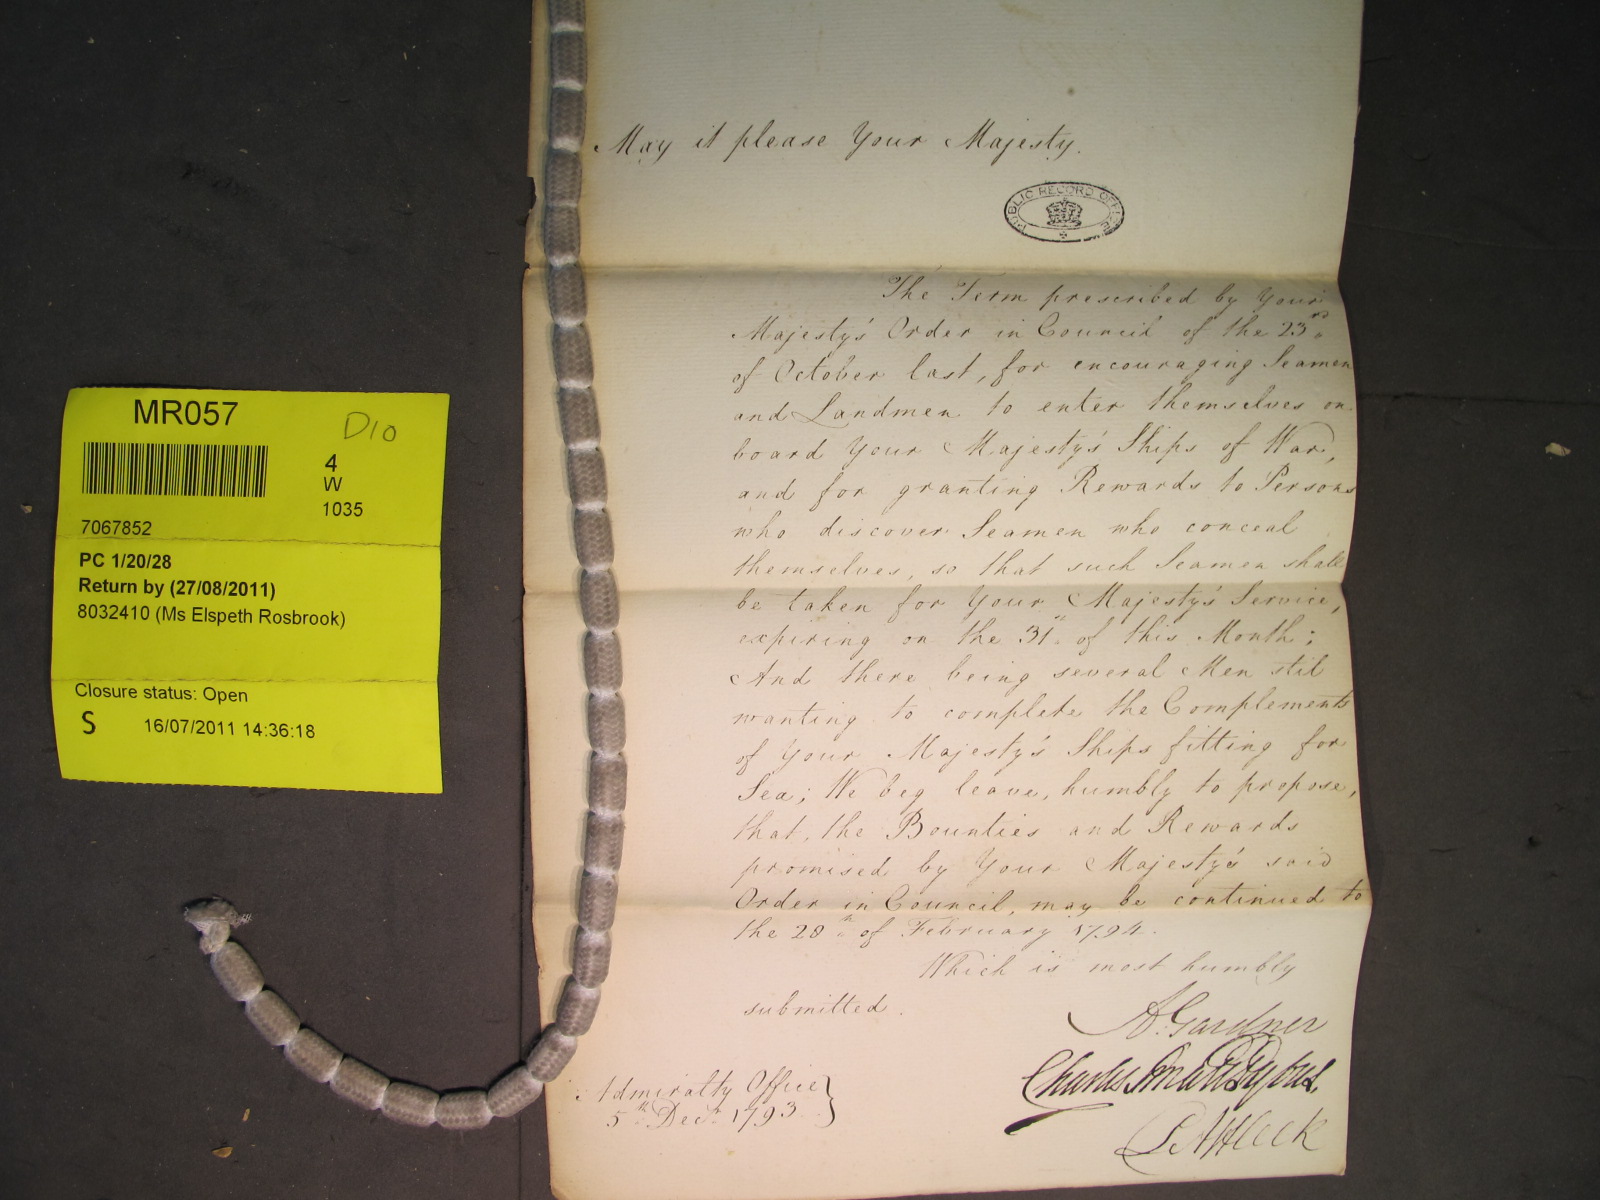 MR057
D10
4
W
1035
7067852
PC 1/20/28
Return by (27/08/2011)
8032410 (Ms Elspeth Rosbrook)
Closure status: Open
S 16/07/2011 14:36:18
May it please Your Majesty.
PUBLIC RECORD OFFICE
The Term prescribed by Your
Majesty's Order in Council of the 23rd
of October last, for encouraging Seamen
and Landmen to enter themselves on
board Your Majesty's Ships of War,
and for granting Rewards to Persons
who discover Seamen who conceal
themselves, so that such Seamen shall
be taken for Your Majesty's Service,
expiring on the 31st of this Month;
And there being several Men stil
wanting to complete the Complements
of Your Majesty's Ships fitting for
Sea; We beg leave, humbly to propose,
that, the Bounties and Rewards
promised by Your Majesty's said
Order in Council, may be continued to
the 28th of February 1794.
Which is most humbly
submitted.
A. Gardner
Charles Small Pybus.
P Affleck
Admiralty Office
5th Decr 1793